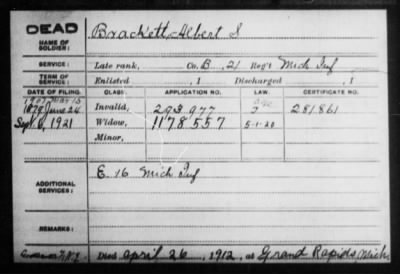 DEAD
NAME OF SOLDIER: Brackett, Albert S
SERVICE: Late rank, Co. B, 21 Reg't Mich Inf
TERM OF SERVICE: Enlisted , 1 Discharged , 1
DATE OF FILING. CLASS. APPLICATION NO. LAW. CERTIFICATE NO.
1879 June 24 Invalid, 293977 281.861
Sept. 6, 1921 Widow, 1178557 5-1-20
Minor,
ADDITIONAL SERVICES: E. 16 Mich Inf
REMARKS:
Died April 26, 1912, at Grand Rapids Mich